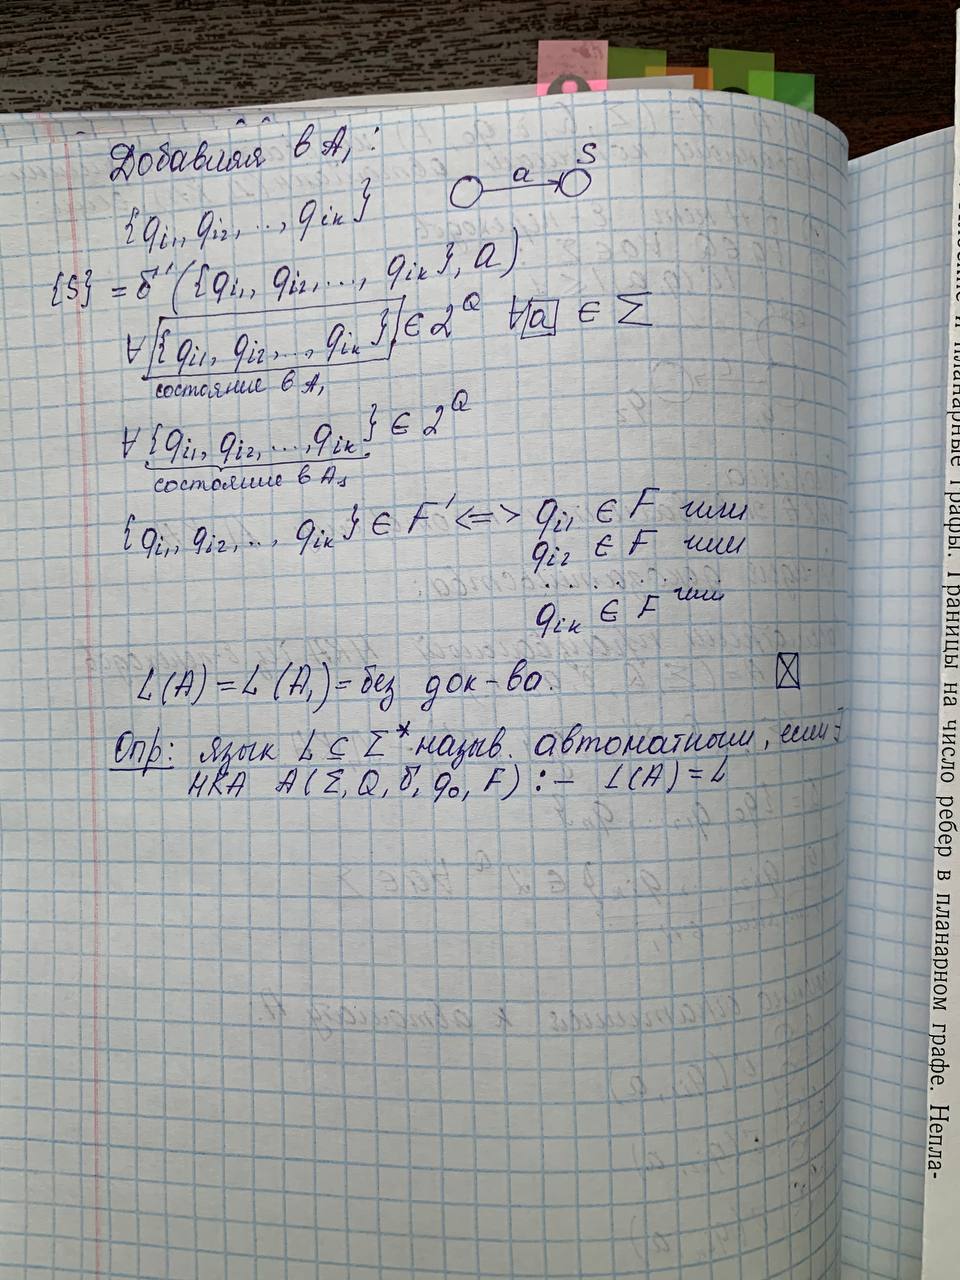 Добавляя в A₁:
{qi₁, qi₂, ..., qiₖ}
a S
{S} = δ'({qi₁, qi₂, ..., qiₖ}, a)
∀ {qi₁, qi₂, ..., qiₖ} ∈ 2^Q ∀ a ∈ Σ
состояние в A₁
∀ {qi₁, qi₂, ..., qiₖ} ∈ 2^Q
состояние в A₁
{qi₁, qi₂, ..., qiₖ} ∈ F' <=> qi₁ ∈ F или
qi₂ ∈ F или
. . . . . . . или
qiₖ ∈ F
L(A) = L(A₁) = без док-ва.
Опр: язык L ⊆ Σ* назыв. автоматным, если ∃
НКА A(Σ, Q, δ, q₀, F) :- L(A) = L
и планарные графы. Границы на число ребер в планарном графе. Непла-